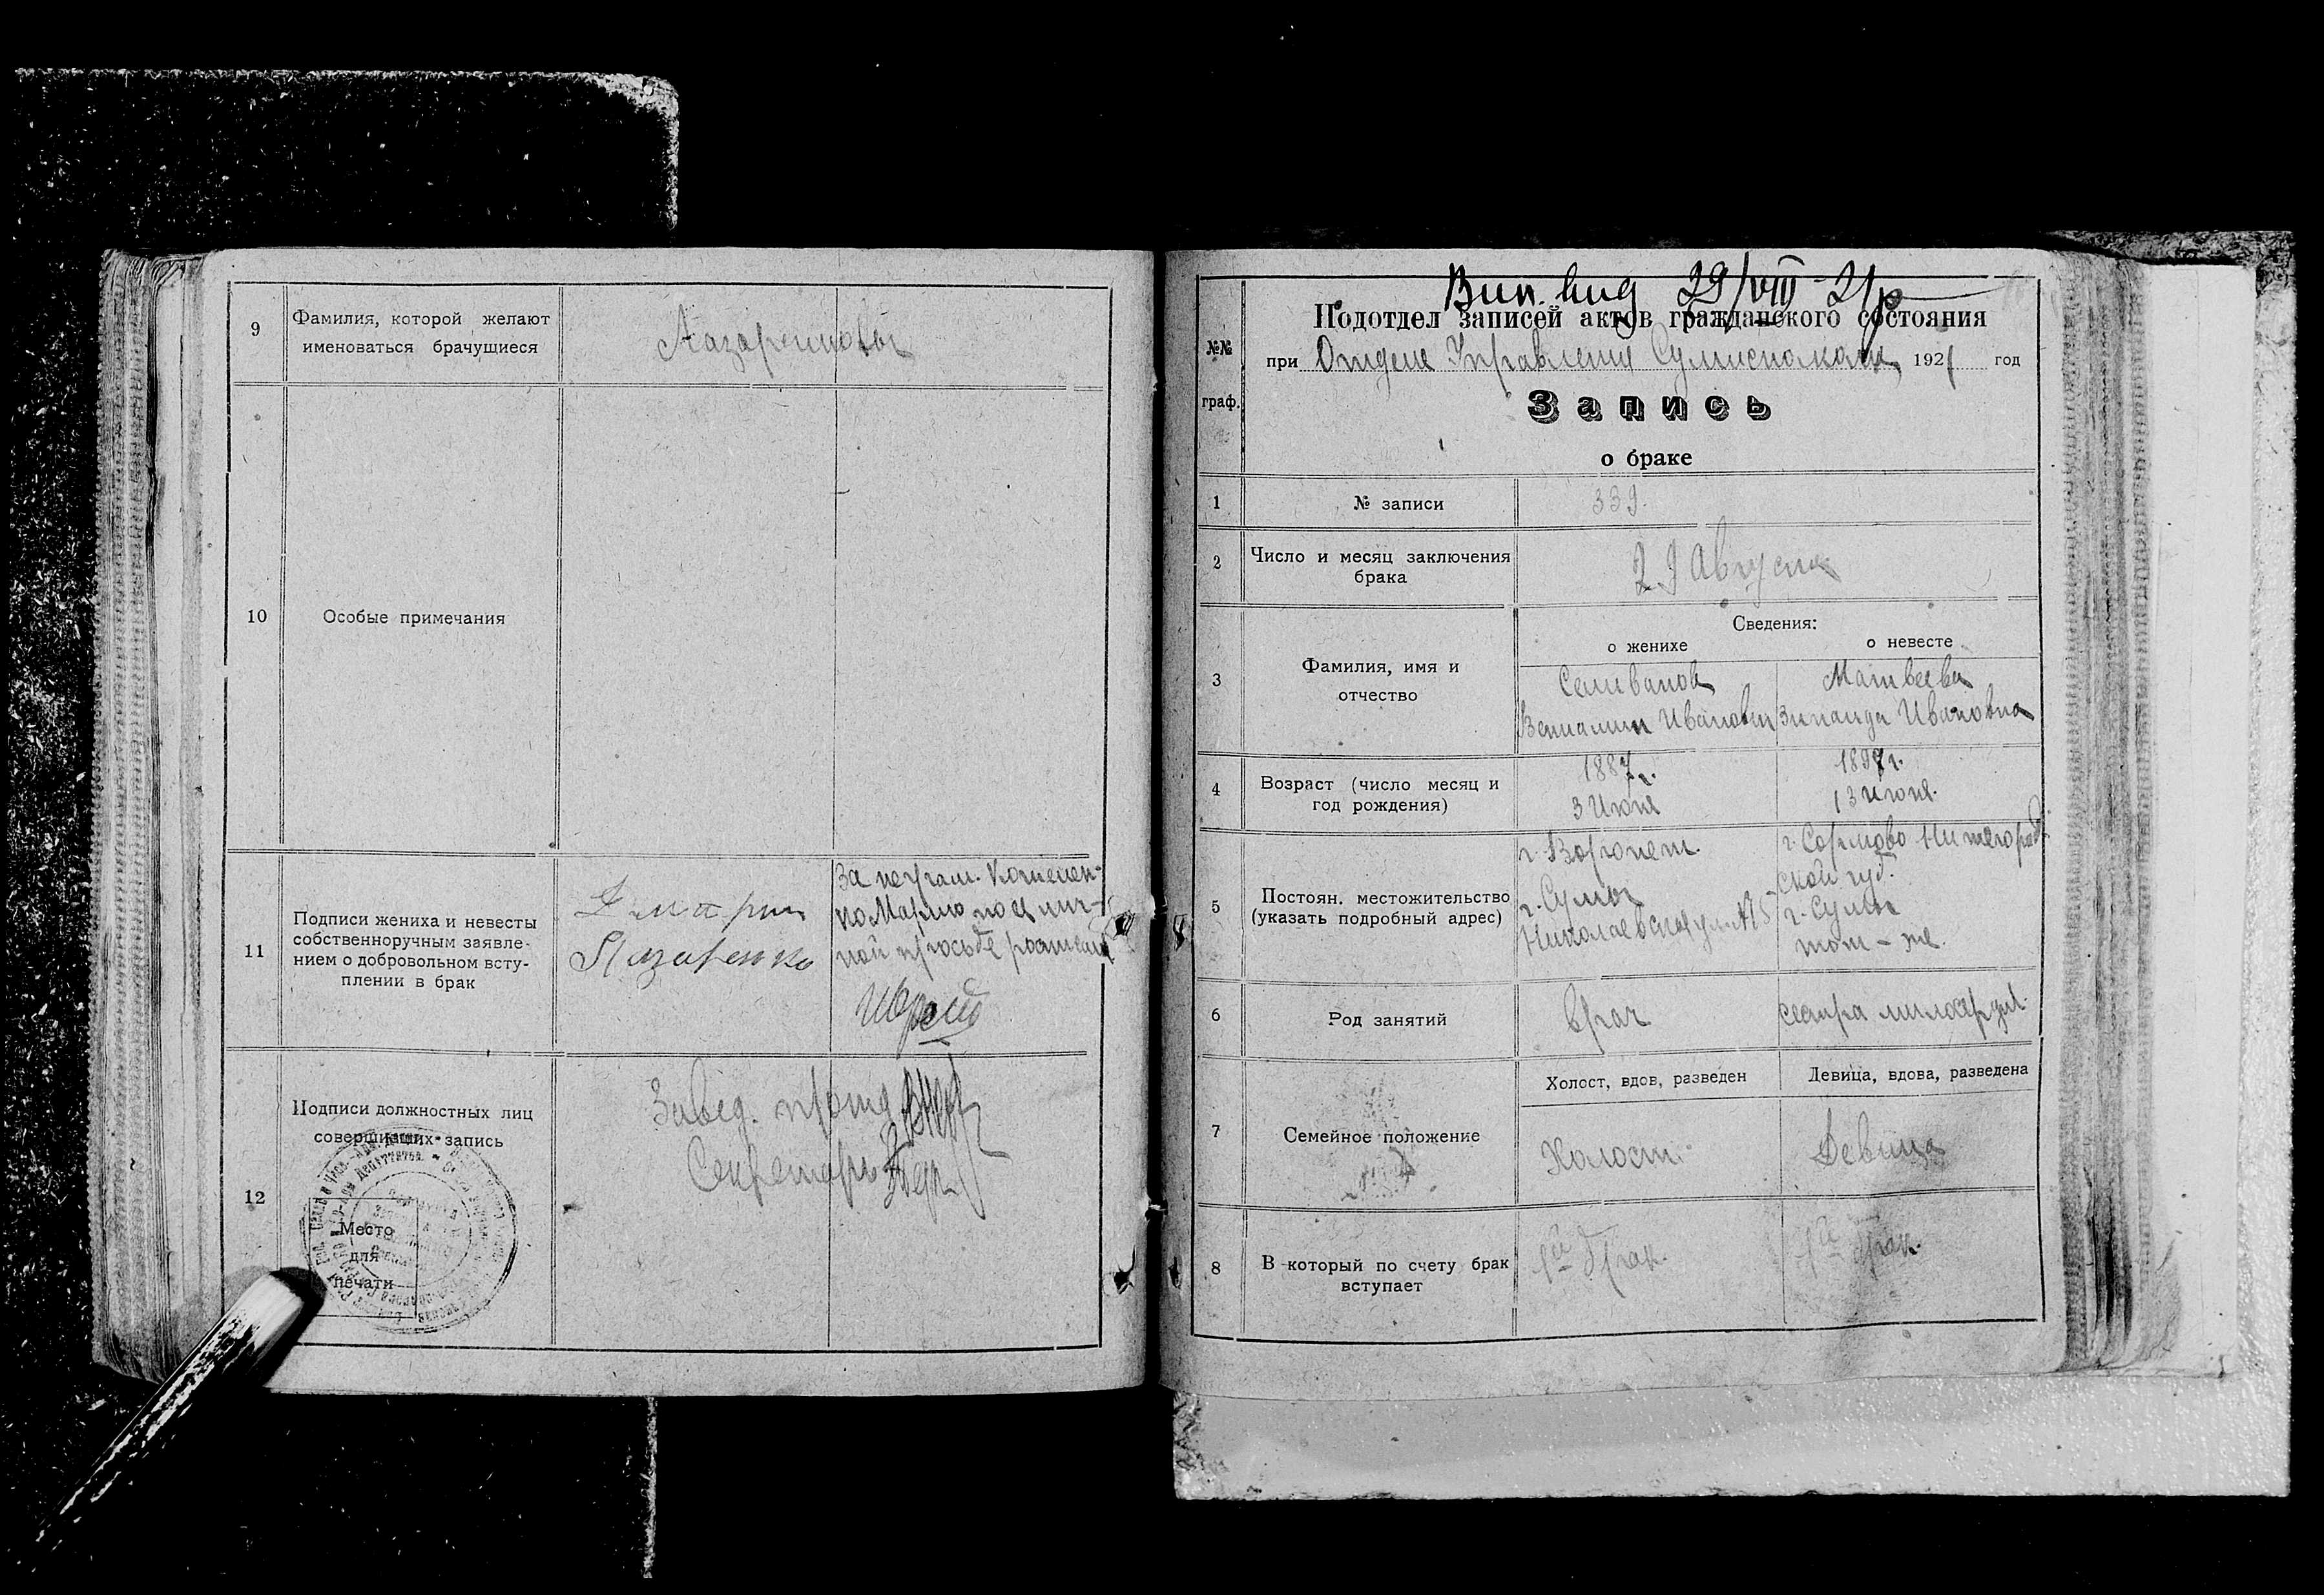 9
Фамилия, которой желают
именоваться брачущиеся
10
Особые примечания
11
Подписи жениха и невесты
собственноручным заявле-
нием о добровольном всту-
плении в брак
Дмитрий
Лазаренко
За неграм.
Марию по её лич-
ной просьбе
12
Подписи должностных лиц
совершивших запись
Место
для
печати
Завед.
Секретарь
29/VIII-21р
№№
граф.
Подотдел записей актов гражданского состояния
при Отделе Управления 1921 год
Запись
о браке
1
№ записи
339.
2
Число и месяц заключения
брака
29 Августа
3
Фамилия, имя и
отчество
Сведения:
о женихе
о невесте
Селиванов
Вениамин Иванович
Матвеева
Зинаида Ивановна
4
Возраст (число месяц и
год рождения)
1887г.
3 Июня
1897г.
13 июня.
5
Постоян. местожительство
(указать подробный адрес)
г. Воронеж.
г. Сумы
Николаевская ул.
г. Сормово Нижегород
ской губ.
г. Сумы
там-же.
6
Род занятий
врач
сестра милосерд
7
Семейное положение
Холост, вдов, разведен
Девица, вдова, разведена
Холост
Девица
8
В который по счету брак
вступает
1й брак.
1й брак.